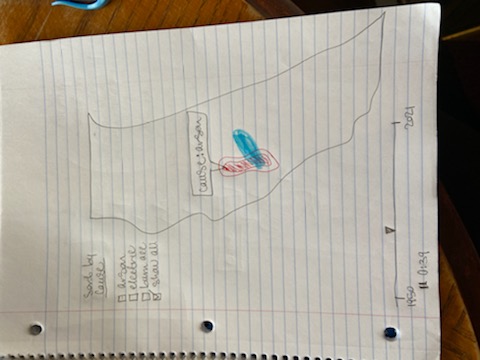 Sort by
Cause
arson
electric
burn all
show all
cause: arson
1950
2021
0:39